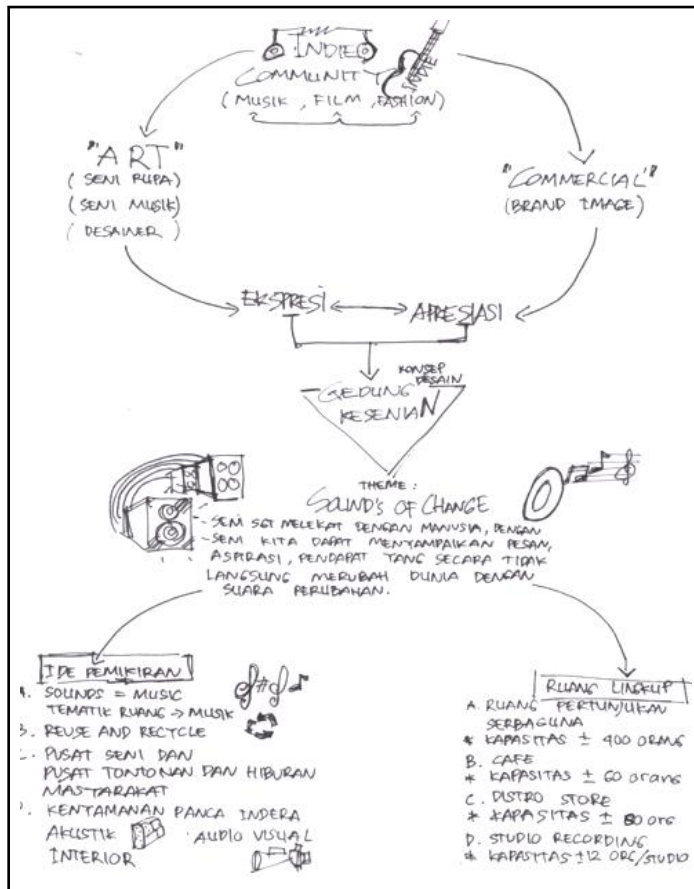 INDIE
COMMUNITY
INDIE
(MUSIK, FILM, FASHION)
"ART"
(SENI RUPA)
(SENI MUSIK)
(DESAINER)
"COMMERCIAL"
(BRAND IMAGE)
EKSPRESI
APRESIASI
KONSEP
DESAIN
GEDUNG
KESENIAN
THEME :
SOUND'S OF CHANGE
- SENI SGT MELEKAT DENGAN MANUSIA, DENGAN
- SENI KITA DAPAT MENYAMPAIKAN PESAN,
ASPIRASI, PENDAPAT YANG SECARA TIDAK
LANGSUNG MERUBAH DUNIA DENGAN
SUARA PERUBAHAN.
IDE PEMIKIRAN
A. SOUNDS = MUSIC
TEMATIK RUANG → MUSIK
B. REUSE AND RECYCLE
C. PUSAT SENI DAN
PUSAT TONTONAN DAN HIBURAN
MASYARAKAT
D. KENYAMANAN PANCA INDERA
AKUSTIK AUDIO VISUAL
INTERIOR
RUANG LINGKUP
A. RUANG PERTUNJUKAN
SERBAGUNA
* KAPASITAS ± 400 ORANG
B. CAFE
* KAPASITAS ± 60 orang
C. DISTRO STORE
* KAPASITAS ± 80 org
D. STUDIO RECORDING
* KAPASITAS ±12 ORG/STUDIO